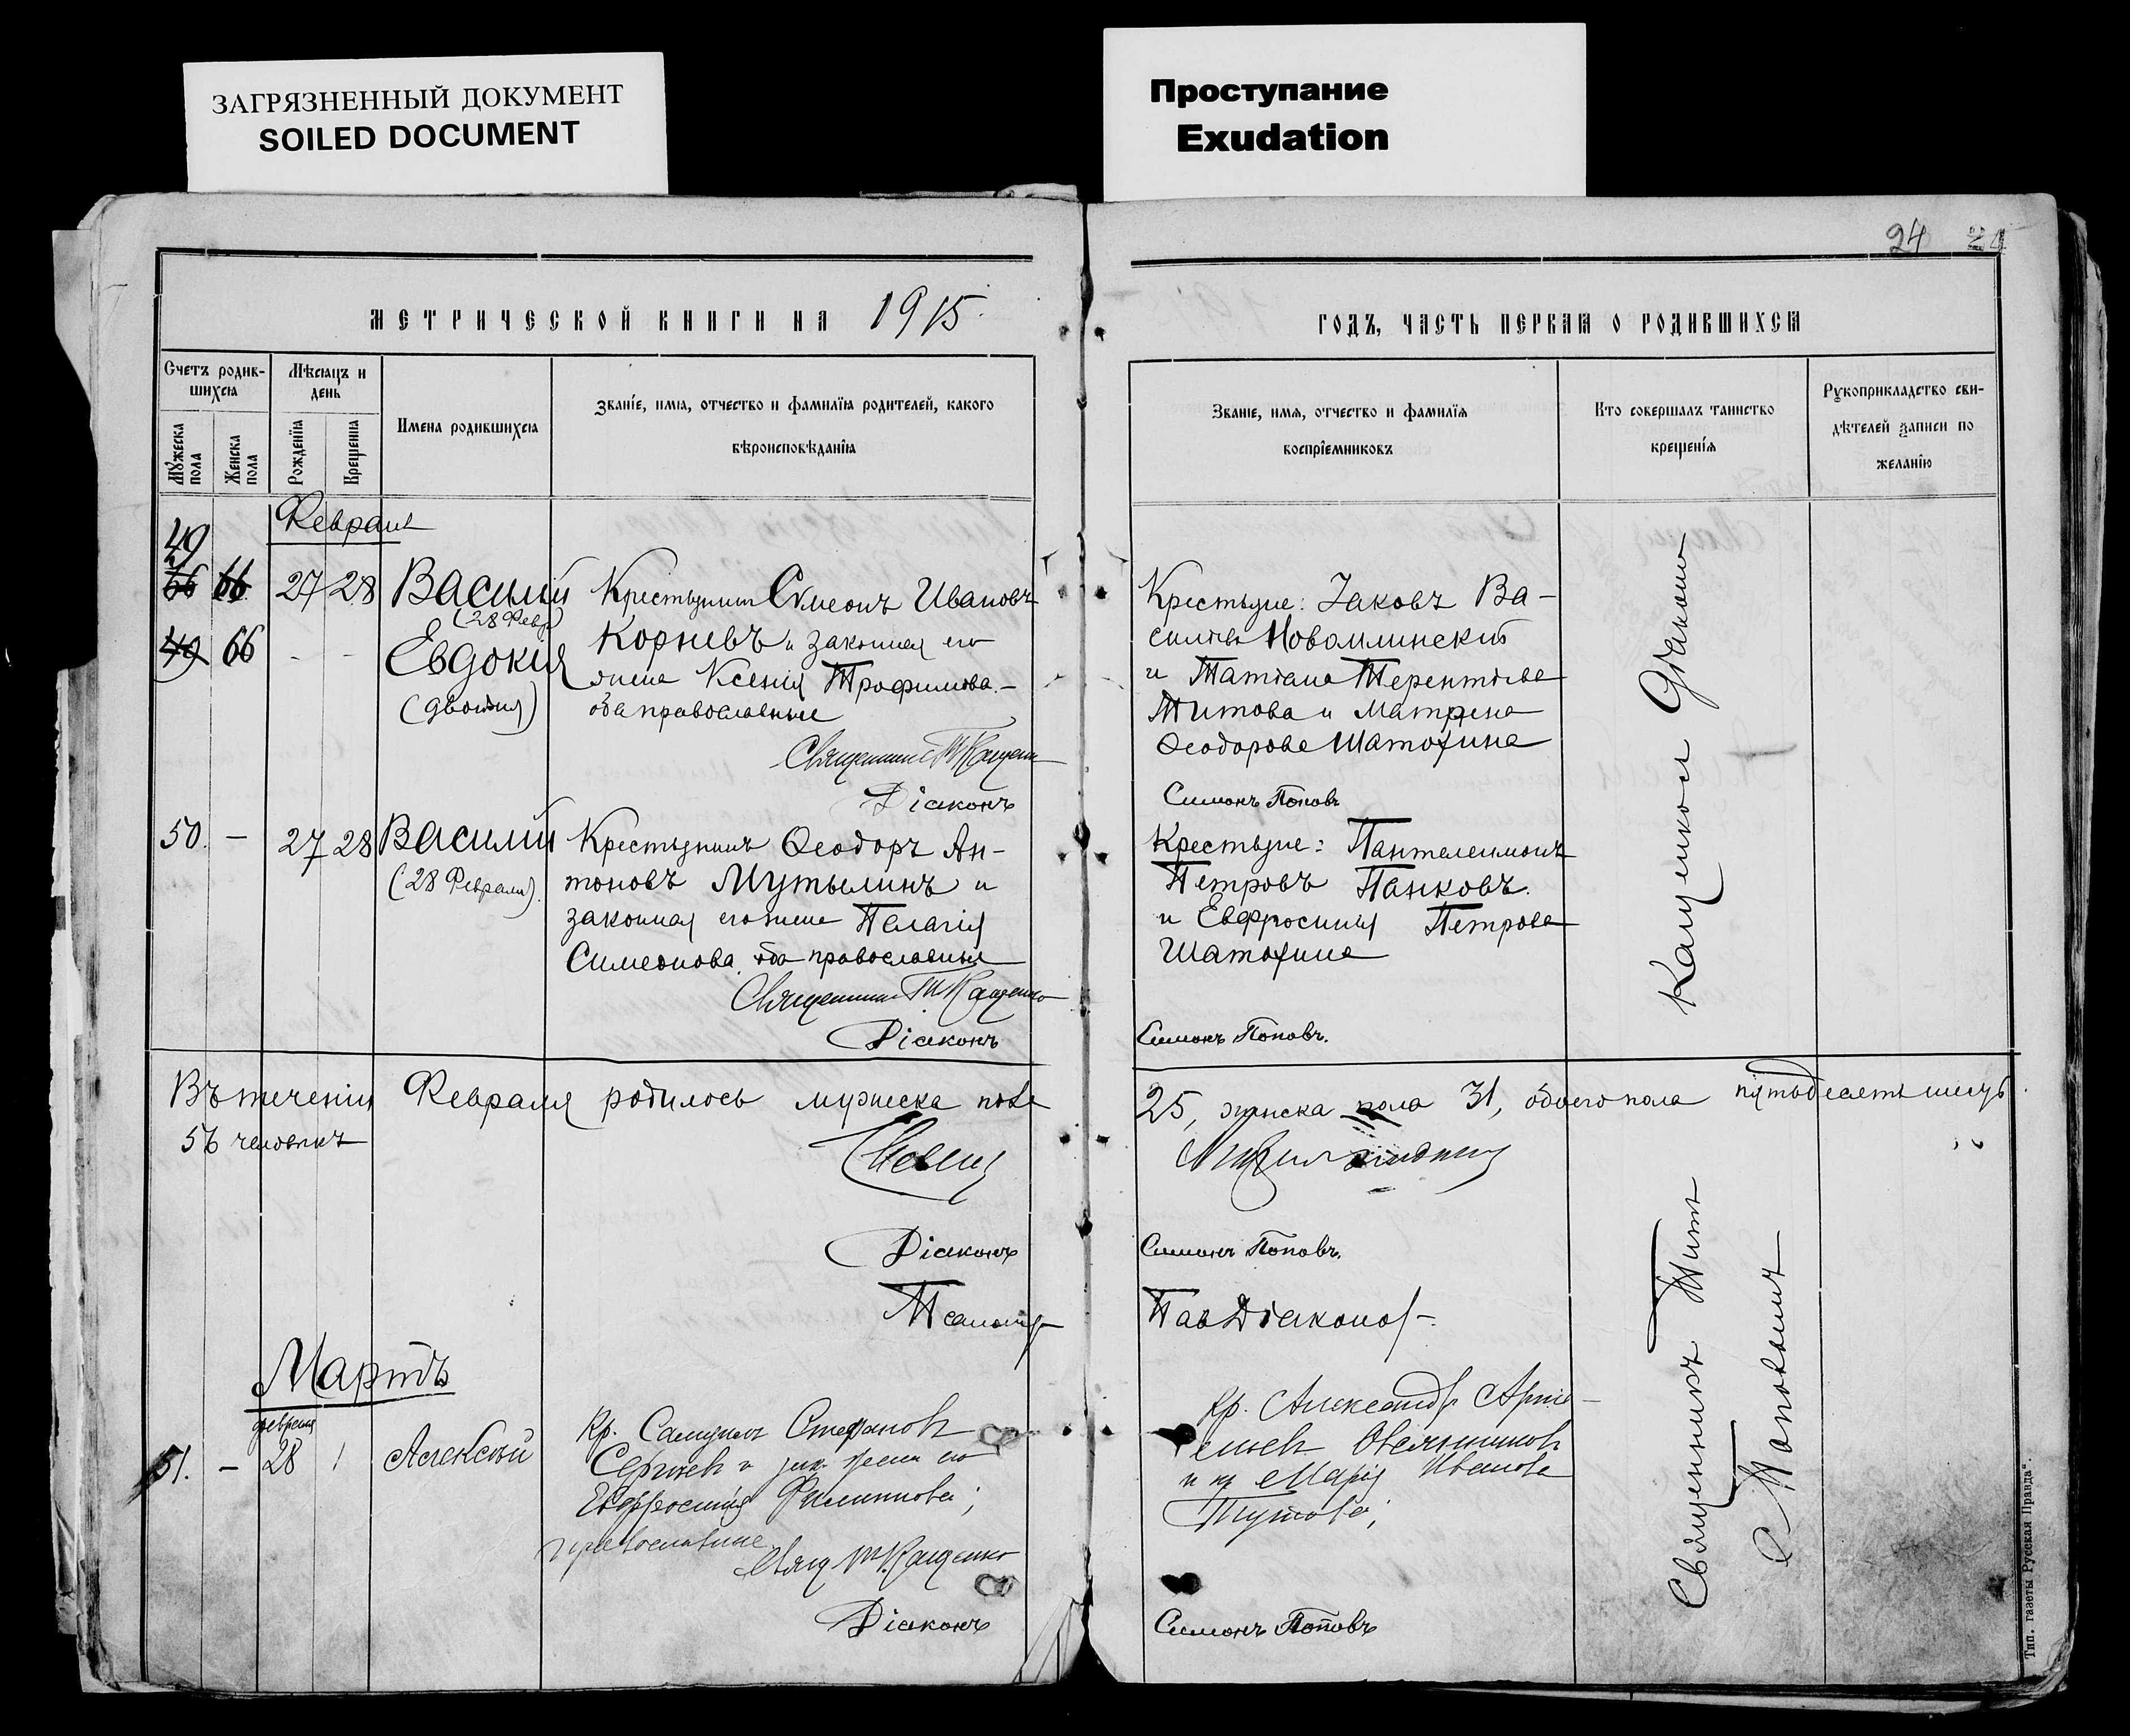 ЗАГРЯЗНЕННЫЙ ДОКУМЕНТ
SOILED DOCUMENT
Проступание
Exudation
24
МЕТРИЧЕСКОЙ КНИГИ НА 1915
Счетъ родив-
шихся
Мѣсяцъ и
день
Мужеска
пола
Женска
пола
Рожденія
Крещенія
Имена родившихся
Званіе, имя, отчество и фамилія родителей, какого
вѣроисповѣданія
Февраль
49
66 66 27 28 Василий
(28 Февр)
Крестьянинъ Симеонъ Ивановъ
49 66 - - Евдокия
(двойня)
Корневъ и законная его
жена Ксенія Трофимова.-
оба православные
Священникъ Т Кащенко
Діаконъ
50. - 27 28 Василий
(28 Февраля).
Крестьянинъ Ѳеодоръ Ан-
тоновъ Мутылинъ и
законная его жена Пелагія
Симеонова, оба православные
Священникъ Т Кащенко
Діаконъ
Въ теченіи Февраля родилось мужеска пола
56 человѣкъ
Діаконъ
Псаломщ
Мартъ
февраля
51. - 28 1 Алексѣй
Кр. Самуилъ Стефановъ
Сергѣевъ и зак. жена его
Евфросинія Филиппова;
православные
Свящ Т. Кащенко
Діаконъ
ГОДЪ, ЧАСТЬ ПЕРВАЯ О РОДИВШИХСЯ
Званіе, имя, отчество и фамилія
воспріемниковъ
Кто совершалъ таинство
крещенія
Рукоприкладство сви-
дѣтелей записи по
желанію
Крестьяне: Іаковъ Ва-
сильевъ Новомлинскій
и Татіана Терентіева
Титова и Матрона
Ѳеодорова Шатохина
Симонъ Поповъ
Крестьяне: Пантелеимонъ
Петровъ Панковъ.
и Евфросинія Петрова
Шатохина
Симонъ Поповъ.
25, женска пола 31, обоего пола пятьдесятъ шесть
Симонъ Поповъ.
Пав Діаконов
Кр. Александръ Арте-
Овсянниковъ
и кр Марія Иванова
Титова;
Симонъ Поповъ
Священникъ Титъ
Кащенко и Діакономъ
С Поповымъ
Тип. газеты Русская Правда".